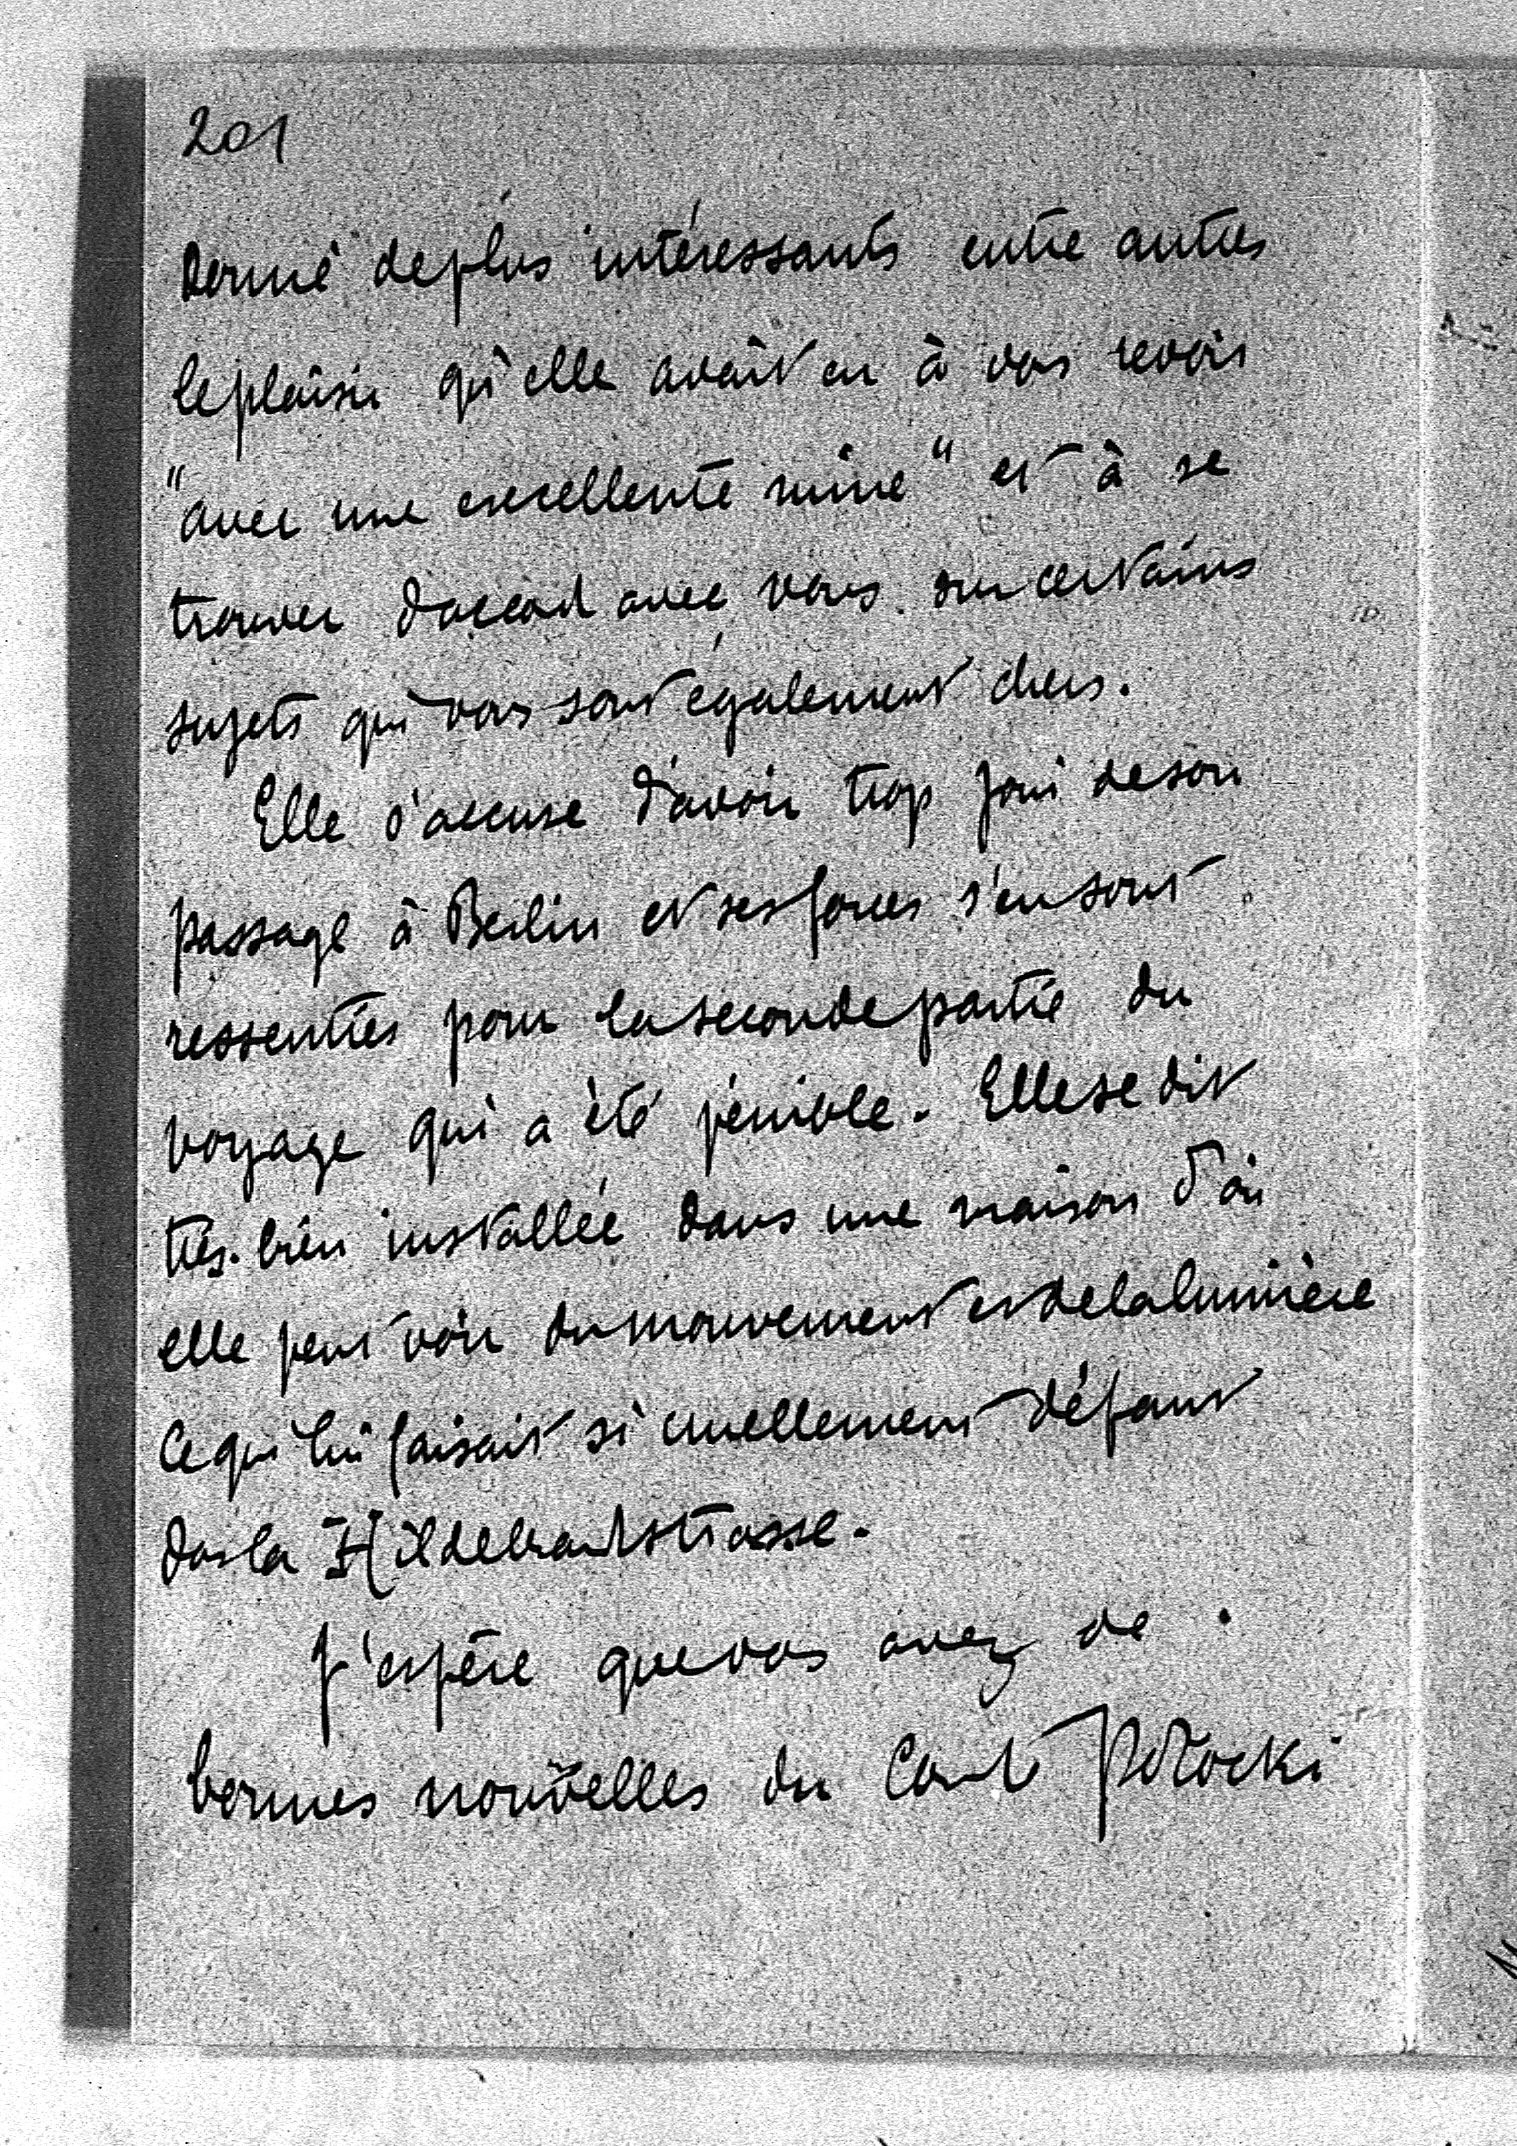 201
donné de plus intéressants entre autres
le plaisir qu'elle avait eu à vous revoir
"avec une excellente mine" et à se
trouver d'accord avec vous sur certains
sujets qui vous sont également chers.
Elle s'accuse d'avoir trop joui de son
passage à Berlin et ses forces s'en sont
ressenties pour la seconde partie du
voyage qui a été pénible. Elle se dit
très bien installée dans une maison d'où
elle peut voir du mouvement et de la lumière
ce qui lui faisait si cruellement défaut
dans la Hildebrandtstrasse.
J'espère que vous avez de
bonnes nouvelles du Comte Potocki